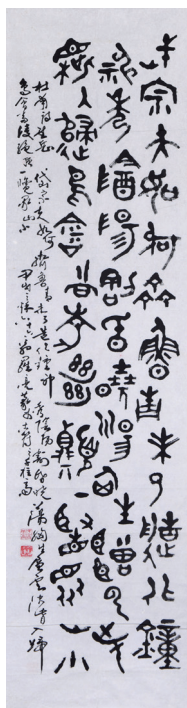 岱宗夫如何齊魯青未了造化鍾
神秀陰陽割昏曉蕩胸生曾雲決
眥入歸鳥會當凌絕頂一覽眾山小
杜甫詩望岳 岱宗夫如何 齊魯青未了 造化鍾神秀 陰陽割昏曉 蕩胸生層雲 決眥入歸
鳥會當凌絕頂一覽眾山小 甲戌之秋